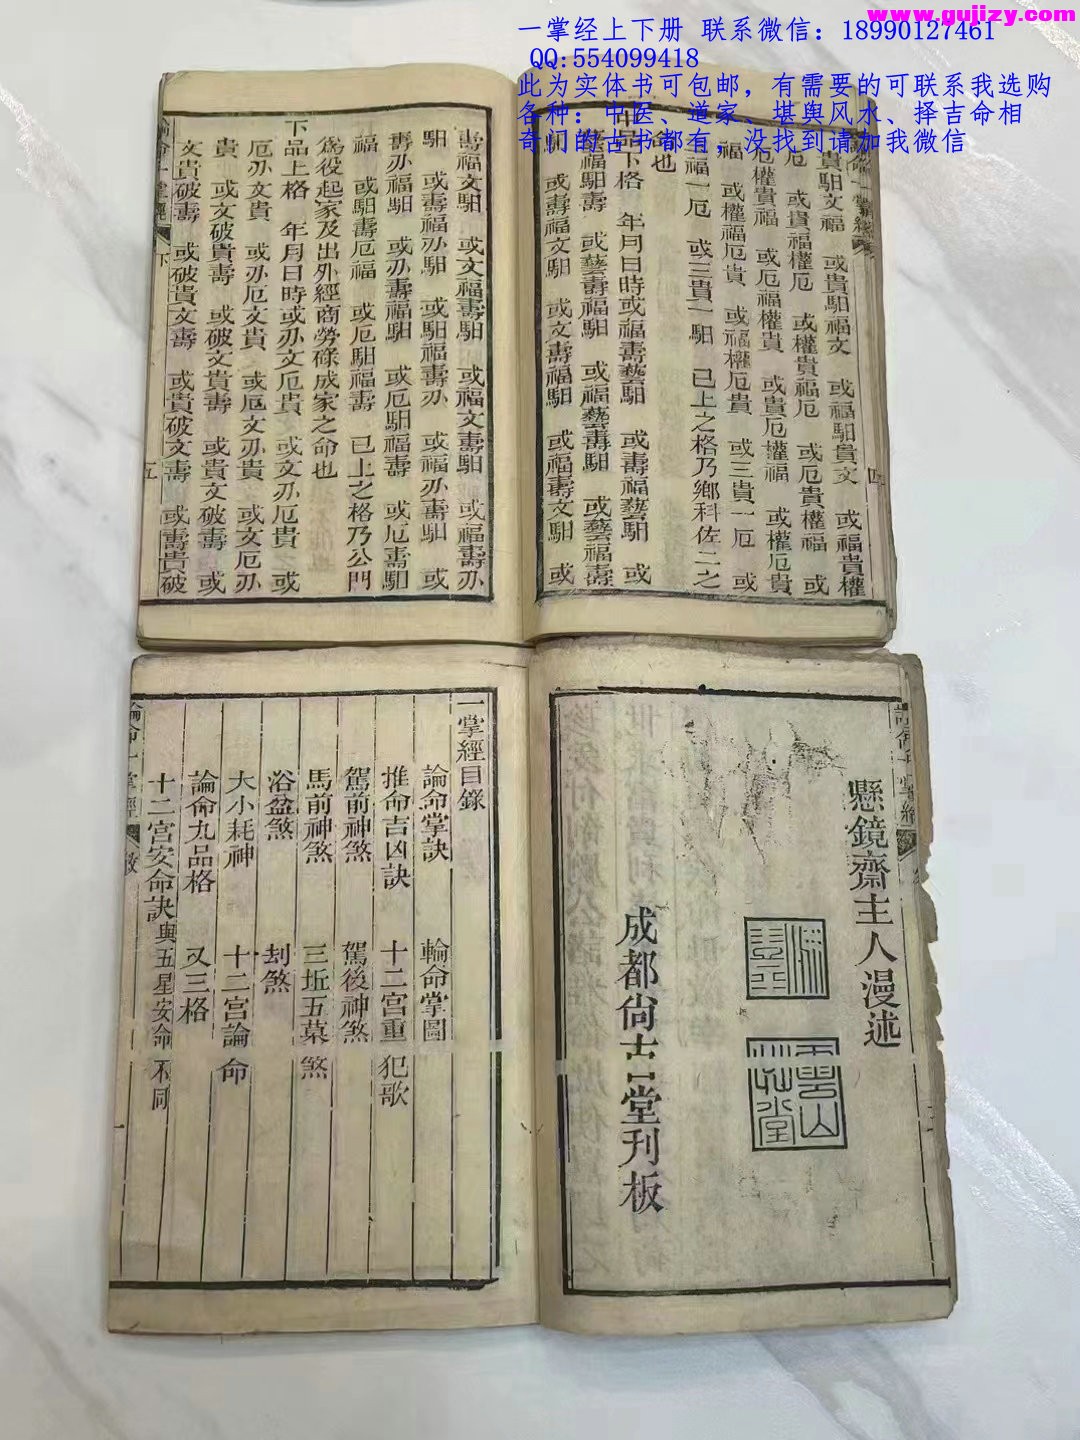 www.gujizy.com
一掌经上下册 联系微信：18990127461
QQ:554099418
此为实体书可包邮，有需要的可联系我选购
各种：中医、道家、堪舆风水、择吉命相
奇门的古书都有，没找到请加我微信
貴馹文福 或貴馹福文 或福馹貴文 或福貴權
厄 或貴福權厄 或權貴福厄 或厄貴權福 或
厄權貴福 或厄福權貴 或貴厄權福 或權厄貴
福 或權福厄貴 或福權厄貴 或三貴一厄 或
三福一厄 或三貴一馹 已上之格乃鄉科佐二之
命也
中品下格 年月日時或福壽藝馹 或壽福藝馹 或
藝福馹壽 或藝壽福馹 或福藝壽馹 或藝福壽
馹 或壽福文馹 或文壽福馹 或福壽文馹 或
壽福文馹 或文福壽馹 或福文壽馹 或福壽刅
馹 或壽福刅馹 或馹福壽刅 或福刅壽馹 或
壽刅福馹 或刅壽福馹 或厄馹福壽 或厄壽馹
福 或馹壽厄福 或厄馹福壽 已上之格乃公門
爲役起家及出外經商勞碌成家之命也
下品上格 年月日時或刅文厄貴 或文刅厄貴 或
厄刅文貴 或刅厄文貴 或厄文刅貴 或文厄刅
貴 或文破貴壽 或破文貴壽 或貴文破壽 或
文貴破壽 或破貴文壽 或貴破文壽 或壽貴破
論命一掌經 下 五
懸鏡齋主人漫述
成都尙古堂刊板
一掌經目錄
論命掌訣 輪命掌圖
推命吉凶訣 十二宮重犯歌
駕前神煞 駕後神煞
馬前神煞 三坵五墓煞
浴盆煞 刦煞
大小耗神 十二宮論命
論命九品格 又三格
十二宮安命訣與五星安命不同
論命一掌經 一